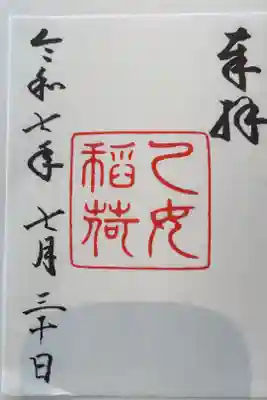 奉拝
乙女
稲荷
令和七年七月三十日